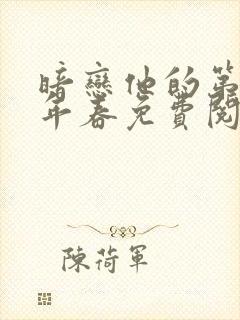 暗戀他的第
年春免費閱
陳荷軍